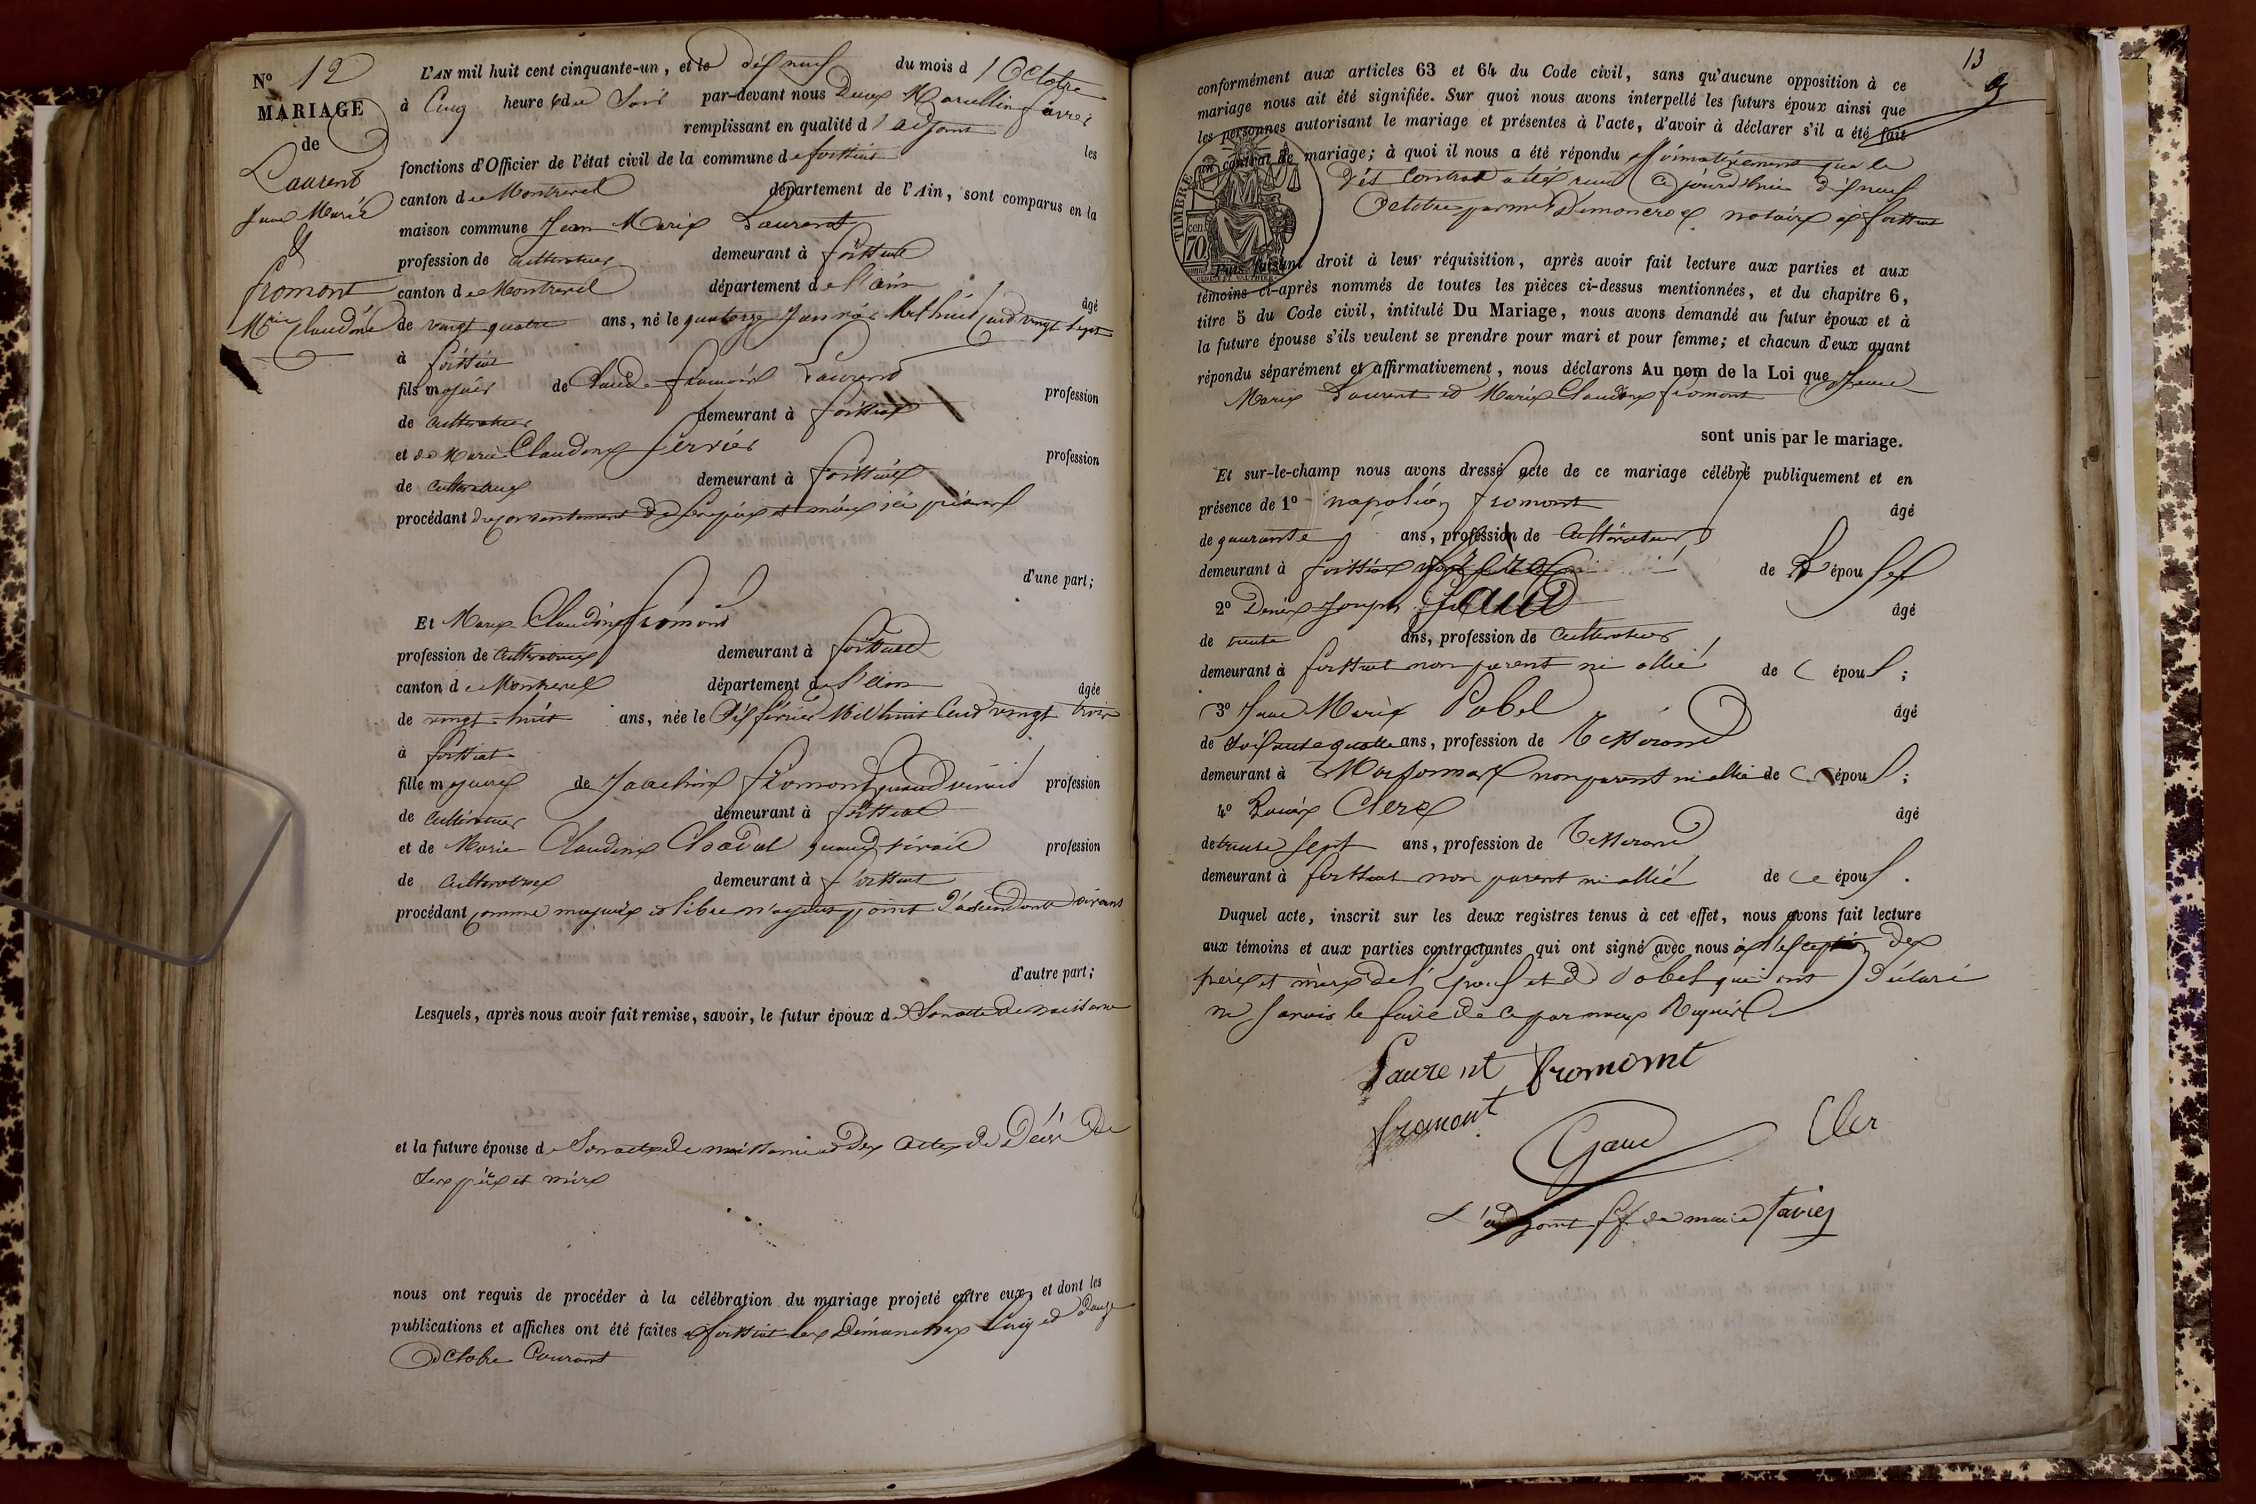 No 12
MARIAGE
de
Laurent
Jean Marie
&
fromont
Mrie Claudine
L'AN mil huit cent cinquante-un, et le dix neuf du mois d'Octobre
à Cinq heure s de Soir par-devant nous Marcellin favier
remplissant en qualité d'adjoint les
fonctions d'Officier de l'état civil de la commune de foissiat
canton de Montrevel département de l'Ain, sont comparus en la
maison commune Jean Marie Laurent
profession de cultivateur demeurant à foissiat
canton de Montrevel département de l'ain âgé
de vingt quatre ans, né le quatorze Janvier Mil huit Cent vingt sept
à foissiat
fils majeur de Claude françois Laurent profession
de cultivateur demeurant à foissiat
et de Marie Claudine ferrier profession
de cultivatrice demeurant à foissiat
procédant du consentement de Ses père et mère ici présent
d'une part;
Et Marie Claudine fromont
profession de cultivatrice demeurant à foissiat
canton de Montrevel département de l'ain âgée
de vingt huit ans, née le Dix février Mil huit Cent vingt trois
à foissiat
fille majeure de Joachim fromont quand vivait profession
de cultivateur demeurant à foissiat
et de Marie Claudine quand vivait profession
de cultivatrice demeurant à foissiat
procédant comme majeure et libre n'ayant point d'ascendant vivans
d'autre part;
Lesquels, après nous avoir fait remise, savoir, le futur époux de Son acte de naissance
et la future épouse de Son acte de naissance et des actes de Décès de
Ses père et mère
nous ont requis de procéder à la célébration du mariage projeté entre eux, et dont les
publications et affiches ont été faites à foissiat les Dimanches Cinq et douze
Octobre Courant
13
conformément aux articles 63 et 64 du Code civil, sans qu'aucune opposition à ce
mariage nous ait été signifiée. Sur quoi nous avons interpellé les futurs époux ainsi que
les personnes autorisant le mariage et présentes à l'acte, d'avoir à déclarer s'il a été fait
un contrat de mariage; à quoi il nous a été répondu affirmativement que le
dit Contrat a été reçu Ce jourd'hui dix neuf
Octobre par me notaire à foissiat
TIMBRE
70 cent
Puis faisant droit à leur réquisition, après avoir fait lecture aux parties et aux
témoins ci-après nommés de toutes les pièces ci-dessus mentionnées, et du chapitre 6,
titre 5 du Code civil, intitulé Du Mariage, nous avons demandé au futur époux et à
la future épouse s'ils veulent se prendre pour mari et pour femme; et chacun d'eux ayant
répondu séparément et affirmativement, nous déclarons Au nom de la Loi que Jean
Marie Laurent et Marie Claudine fromont
sont unis par le mariage.
Et sur-le-champ nous avons dressé acte de ce mariage célébré publiquement et en
présence de 1o napoléon fromont âgé
de quarante ans, profession de Cultivateur
demeurant à foissiat de L'épouse
2o Denis Joseph Gaud âgé
de trente ans, profession de cultivateur
demeurant à foissiat non parent ni allié de C époux;
3o Jean Marie Pobel âgé
de Soixante quatre ans, profession de Tisserand
demeurant à non parent ni allié de C époux;
4o Clerc âgé
de trente sept ans, profession de Tisserand
demeurant à foissiat non parent ni allié de Ce époux.
Duquel acte, inscrit sur les deux registres tenus à cet effet, nous avons fait lecture
aux témoins et aux parties contractantes qui ont signé avec nous à l'exception des
père et mère de l'époux et de Pobel qui ont Déclaré
ne Savoir le faire de ce par nous Requis
Laurent fromont
fromont
Gaud
Cler
L'adjoint ff de maire favier